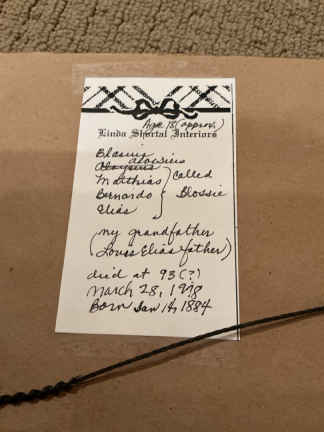 Age 18 (approx.)
Linda Shortal Interiors
Blasius
Aloysius
Matthias } called
Bernardo Blossie
Elias
my grandfather
(Louis Elias father)
died at 93(?)
March 28, 1978
Born Jan 14, 1884